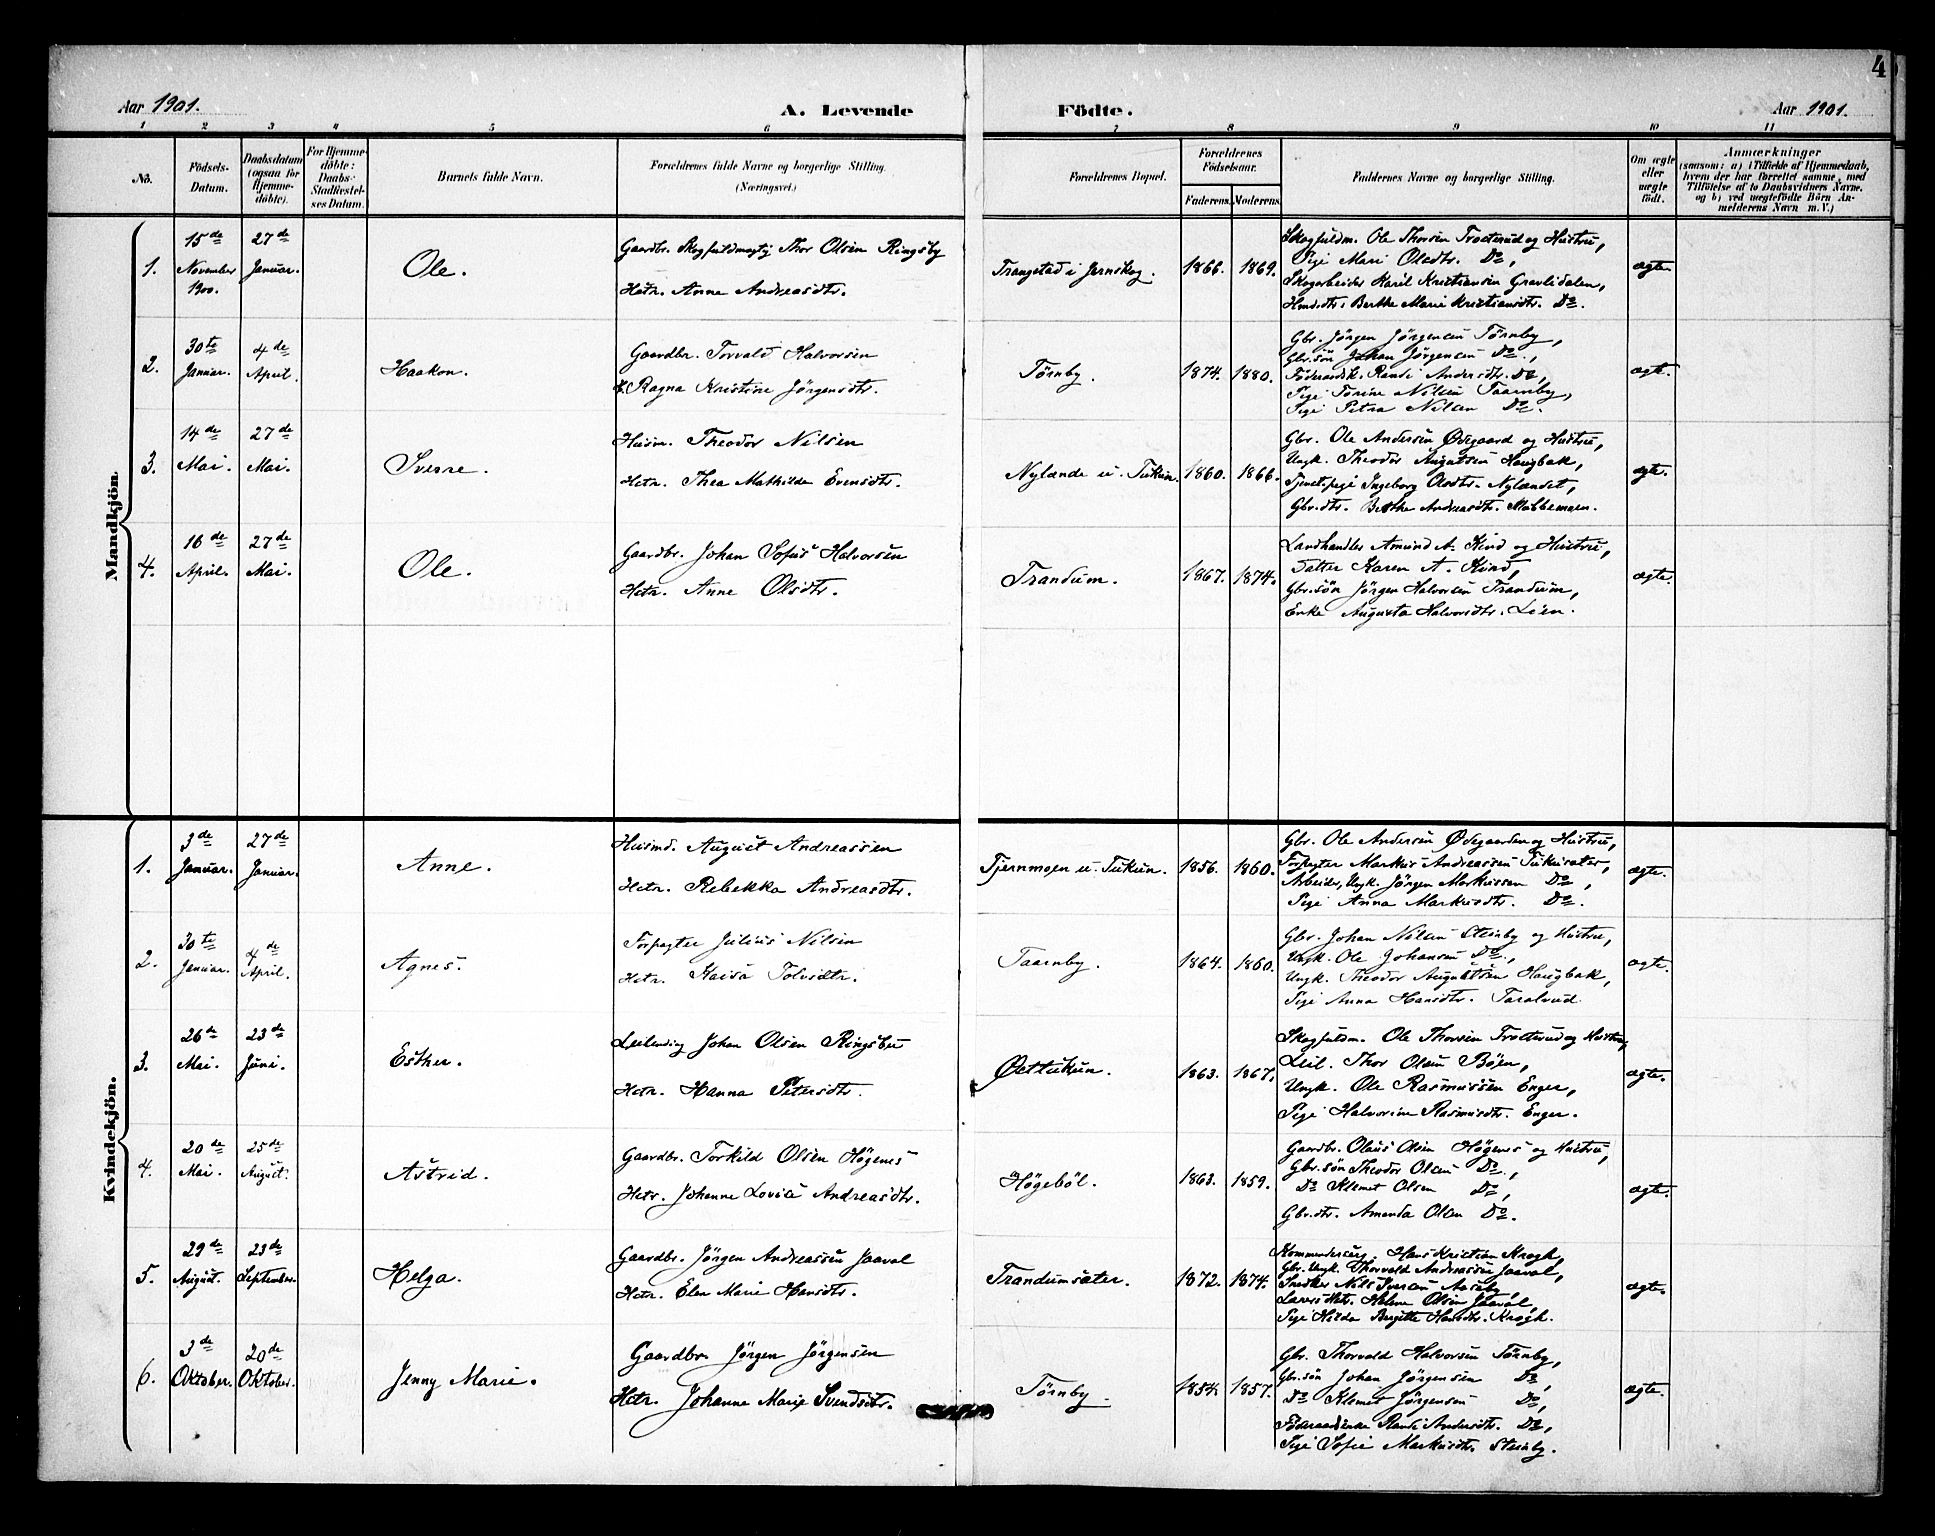 4
Aar 1901. A. Levende Födte. Aar 1901.
1 2 3 4 5 6 7 8 9 10 11
No. Födsels-Datum. Daabsdatum (ogsaa for Hjemmedöbte). For Hjemmedöbte: Daabs-Stadfæstelses Datum. Barnets fulde Navn. Forældrenes fulde Navne og borgerlige Stilling. (Næringsvei.) Forældrenes Bopæl. Forældrenes Födselsaar. Faderens. Moderens. Faddernes Navne og borgerlige Stilling. Om ægte eller uægte födt. Anmærkninger (saasom: a) i Tilfælde af Hjemmedaab, hvem der har forrettet samme, med Tilföielse af to Daabsvidners Navne, og b) ved uægtefödte Börn Anmelderens Navn m. V.)
Mandkjön
1. 15de November 1900. 27de Januar. Ole.
Gaardbr. Skogfuldmægtig Thor Olsen Ringsby
Hstr. Anne Andreasdtr.
Trangstad i Jernskog. 1866. 1869.
Skogfuldm. Ole Thorsen Trøtterud og Hustru,
Pige Mari Olsdtr. Do,
Skogarbeider Karil Kristiansen Gravlidalen,
Hmdsdtr. Berthe Marie Kristiansdtr. Do.
ægte.
2. 30te Januar. 4de April. Haakon.
Gaardbr. Torvald Halvorsen
H. Ragna Kristine Jörgensdtr.
Törnby. 1874. 1880.
Gbr. Jörgen Jörgensen Törnby,
Gbr.sön Johan Jörgensen Do.,
Föderaadsk. Randi Andersdtr. Do,
Pige Torine Nilsen Taarnby,
Pige Petra Nilsen Do.
ægte.
3. 14de Mai. 27de Mai. Sverre.
Husm. Theodor Nilsen
Hstr. Thea Mathilde Evensdtr.
Nylænde u. Tukun. 1860. 1866.
Gbr. Ole Andersen Ødegaard og Hustru,
Ungk. Theodor Augustsen Haugbak,
Tjenstpige Ingeborg Olsdtr. Nylændet,
Gbr.dtr. Berthe Andreasdtr. Mabbemoen.
ægte.
4. 16de April. 27de Mai. Ole.
Gaardbr. Johan Sofus Halvorsen
Hstr. Anne Olsdtr.
Trandum. 1867. 1874.
Landhandler Amund A. Kind og Hustru,
Datter Karen A. Kind,
Gbr.sön Jörgen Halvorsen Trandum,
Enke Augusta Halvorsdtr. Lien.
ægte.
Kvindekjön.
1. 3de Januar. 27de Januar. Anne.
Husmd. August Andreassen
Hstr. Rebekka Andreasdtr.
Tjernmoen u. Tukun. 1856. 1860.
Gbr. Ole Andersen Ødegaarden og Hustru,
Forpagter Markus Andreassen Tukusæter,
Arbeider, Ungk. Jörgen Markussen Do,
Pige Anna Markusdtr. Do.
ægte.
2. 30te Januar. 4de April. Agnes.
Forpagter Julius Nilsen
Hstr. Kaisa Tolvsdtr.
Taarnby. 1864. 1860.
Gbr. Johan Nilsen Steinby og Hustru,
Ungk. Ole Johansen Do.,
Ungk. Theodor Augustsen Haugbak,
Pige Anna Hansdtr. Taralrud.
ægte.
3. 26de Mai. 23de Juni. Esther.
Leilending Johan Olsen Ringsbu
Hstr. Hanna Petersdtr.
Østtukun. 1863. 1867.
Skogfuldm. Ole Thorsen Trøtterud og Hustru,
Leil. Thor Olsen Böen,
Ungk. Ole Rasmussen Enger,
Pige Halvorine Rasmusdtr. Enger.
ægte.
4. 20de Mai. 25de August. Astrid.
Gaardbr. Torkild Olsen Högenes
Hstr. Johanne Lovise Andreasdtr.
Högeböl. 1863. 1859.
Gaardbr. Olaus Olsen Högenes og Hustru,
Gbr.sön Theodor Olsen Do.,
Do Klemet Olsen Do,
Gbr.dtr. Amanda Olsen Do.
ægte.
5. 29de August. 23de September. Helga.
Gaardbr. Jörgen Andreassen Jaaval
Hstr. Elen Marie Hansdtr.
Trandumsæter. 1872. 1874.
Hans Kristian Krogh,
Gbr. Ungk. Thorvald Andreassen Jaaval,
Snedker Nils Iversen Aaseby
Hstr. Helene Olsen Jaaval,
Pige Hilda Birgitte Hansdtr. Krogh.
ægte.
6. 3de Oktober. 20de Oktober. Jenny Marie.
Gaardbr. Jörgen Jörgensen
Hstr. Johanne Marie Svendsdtr.
Törnby. 1854. 1857.
Gbr. Thorvald Halvorsen Törnby,
Gbr.sön Johan Jörgensen Do,
Do Klemet Jörgensen Do,
Föderaadsenke Randi Andersdtr. Do,
Pige Sofie Markusdtr. Steinby.
ægte.